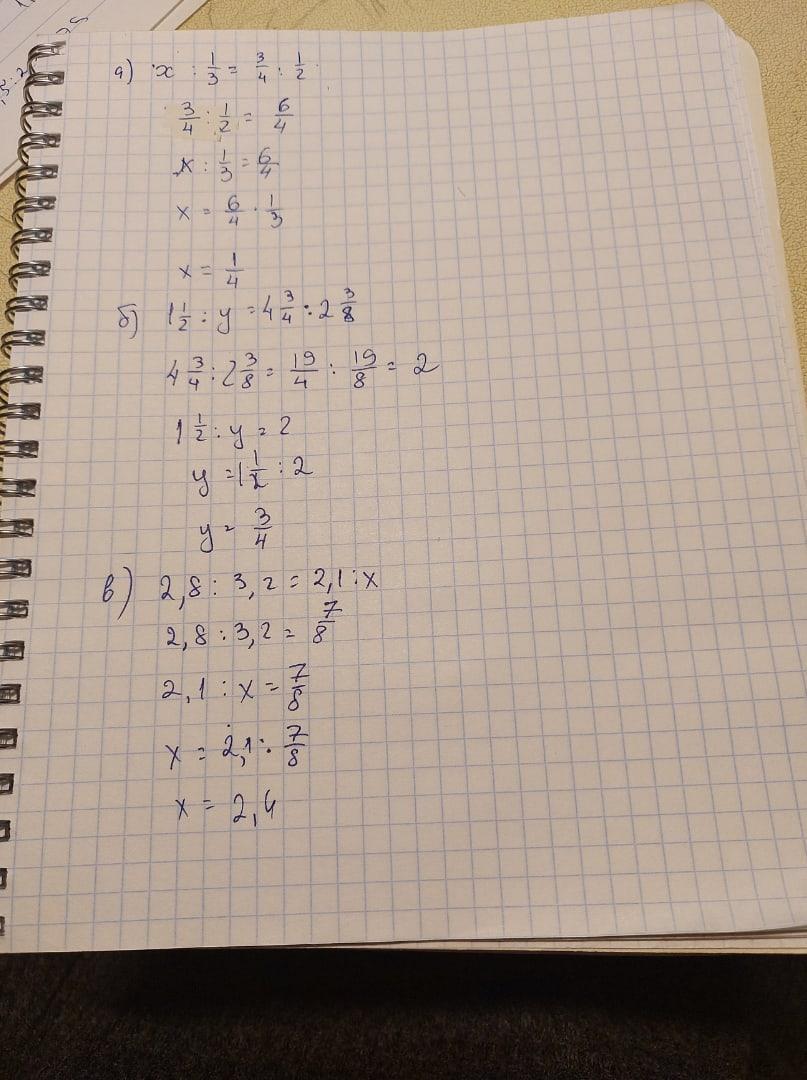 а) x : 1/3 = 3/4 : 1/2
3/4 : 1/2 = 6/4
x : 1/3 = 6/4
x = 6/4 · 1/3
x = 1/4
б) 1 1/2 : y = 4 3/4 : 2 3/8
4 3/4 : 2 3/8 = 19/4 : 19/8 = 2
1 1/2 : y = 2
y = 1 1/2 : 2
y = 3/4
в) 2,8 : 3,2 = 2,1 : x
2,8 : 3,2 = 7/8
2,1 : x = 7/8
x = 2,1 : 7/8
x = 2,4